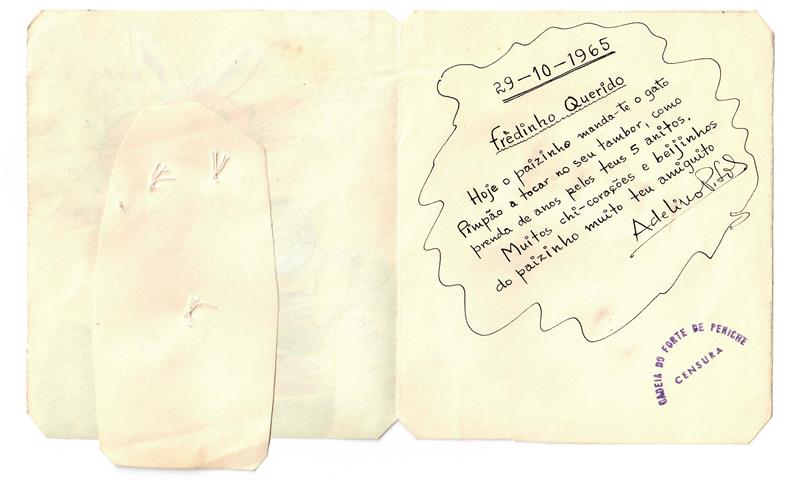 29-10-1965
Frèdinho Querido
Hoje o paizinho manda-te o gato
Pimpão a tocar no seu tambor, como
prenda de anos pelos teus 5 anitos.
Muitos chi-corações e beijinhos
do paizinho muito teu amiguito
Adelino
CADEIA DO FORTE DE PENICHE
CENSURA